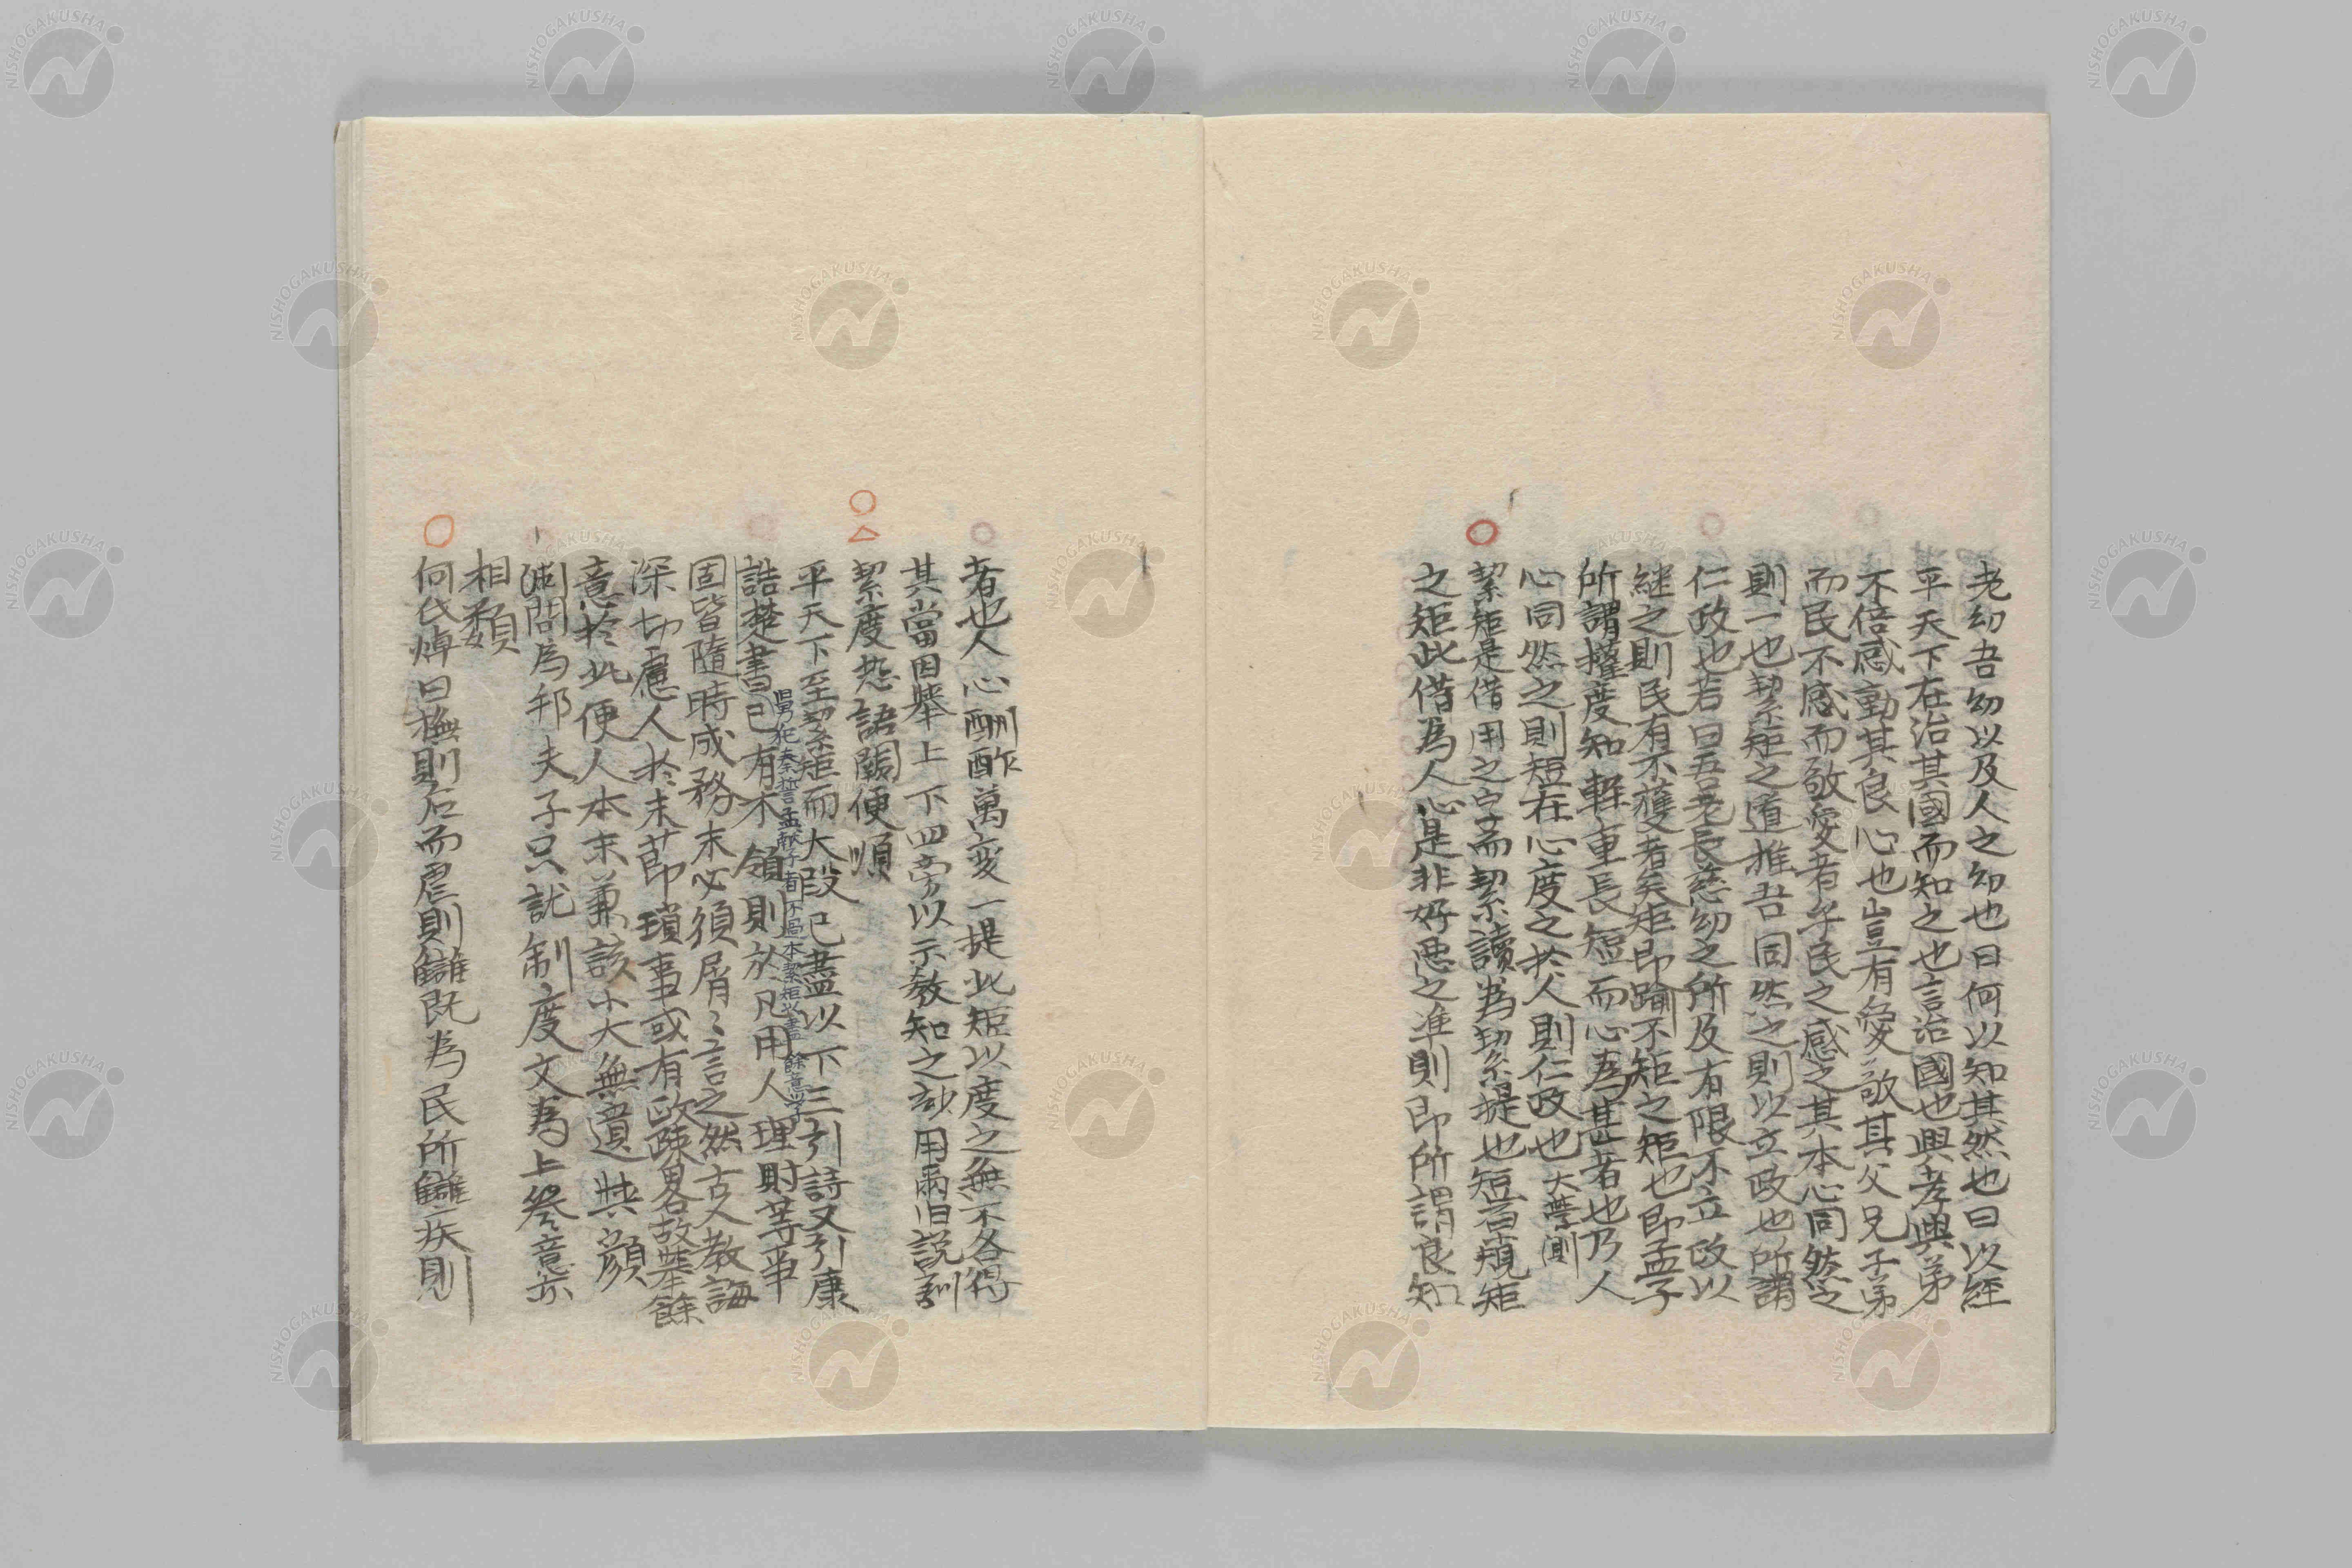 老幼吾幼以及人之幼也曰何以知其然也曰以經
平天下在治其國而知之也言治國也興孝興弟
不倍感動其良心也豈有愛敬其父兄子弟
而民不感而敬愛者乎民之感之其本心同然之
則一也絜矩之道推吾同然之則以立政也所謂
仁政也若曰吾老長慈幼之所及有限不立政以
継之則民有不獲者矣矩即踰不矩之矩也即孟子
所謂權度知輕重長短而心為甚者也乃人
心同然之則短在心度之於人則仁政也 大學測
○絜矩是借用之字而絜讀為絜提也短若規矩
之矩此借為人心是非好惡之準則即所謂良知
者也人心酬酢萬変一提此矩以度之無不各得
其當因舉上下四旁以示教知之玅用爾旧説訓
○△絜度怨語闊便順
平天下至絜矩而大段已盡以下三引詩又引康
誥楚書舅犯秦誓孟獻子者不過本絜矩以盡餘意
已有不領則於凡用人理財等事
固皆隨時成務末必須屑〻言之然古人教誨
深切慮人於末莭瑣事或有歐踈畧故舉餘
意於此便人本末兼該小大無遺與顔
渕問為邦夫子只就制度文為上發意亦
相類
○何氏焯曰撫則后而虐則讎既為民所讎疾則